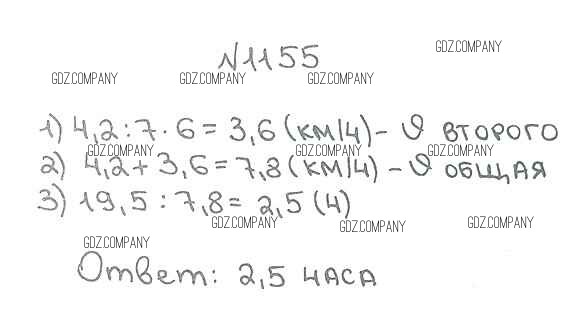 №1155
GDZ.COMPANY
GDZ.COMPANY GDZ.COMPANY GDZ.COMPANY
1) 4,2 : 7 · 6 = 3,6 (км/ч) - υ второго
GDZ.COMPANY GDZ.COMPANY GDZ.COMPANY
2) 4,2 + 3,6 = 7,8 (км/ч) - υ общая
3) 19,5 : 7,8 = 2,5 (ч)
GDZ.COMPANY GDZ.COMPANY GDZ.COMPANY
GDZ.COMPANY
Ответ: 2,5 часа